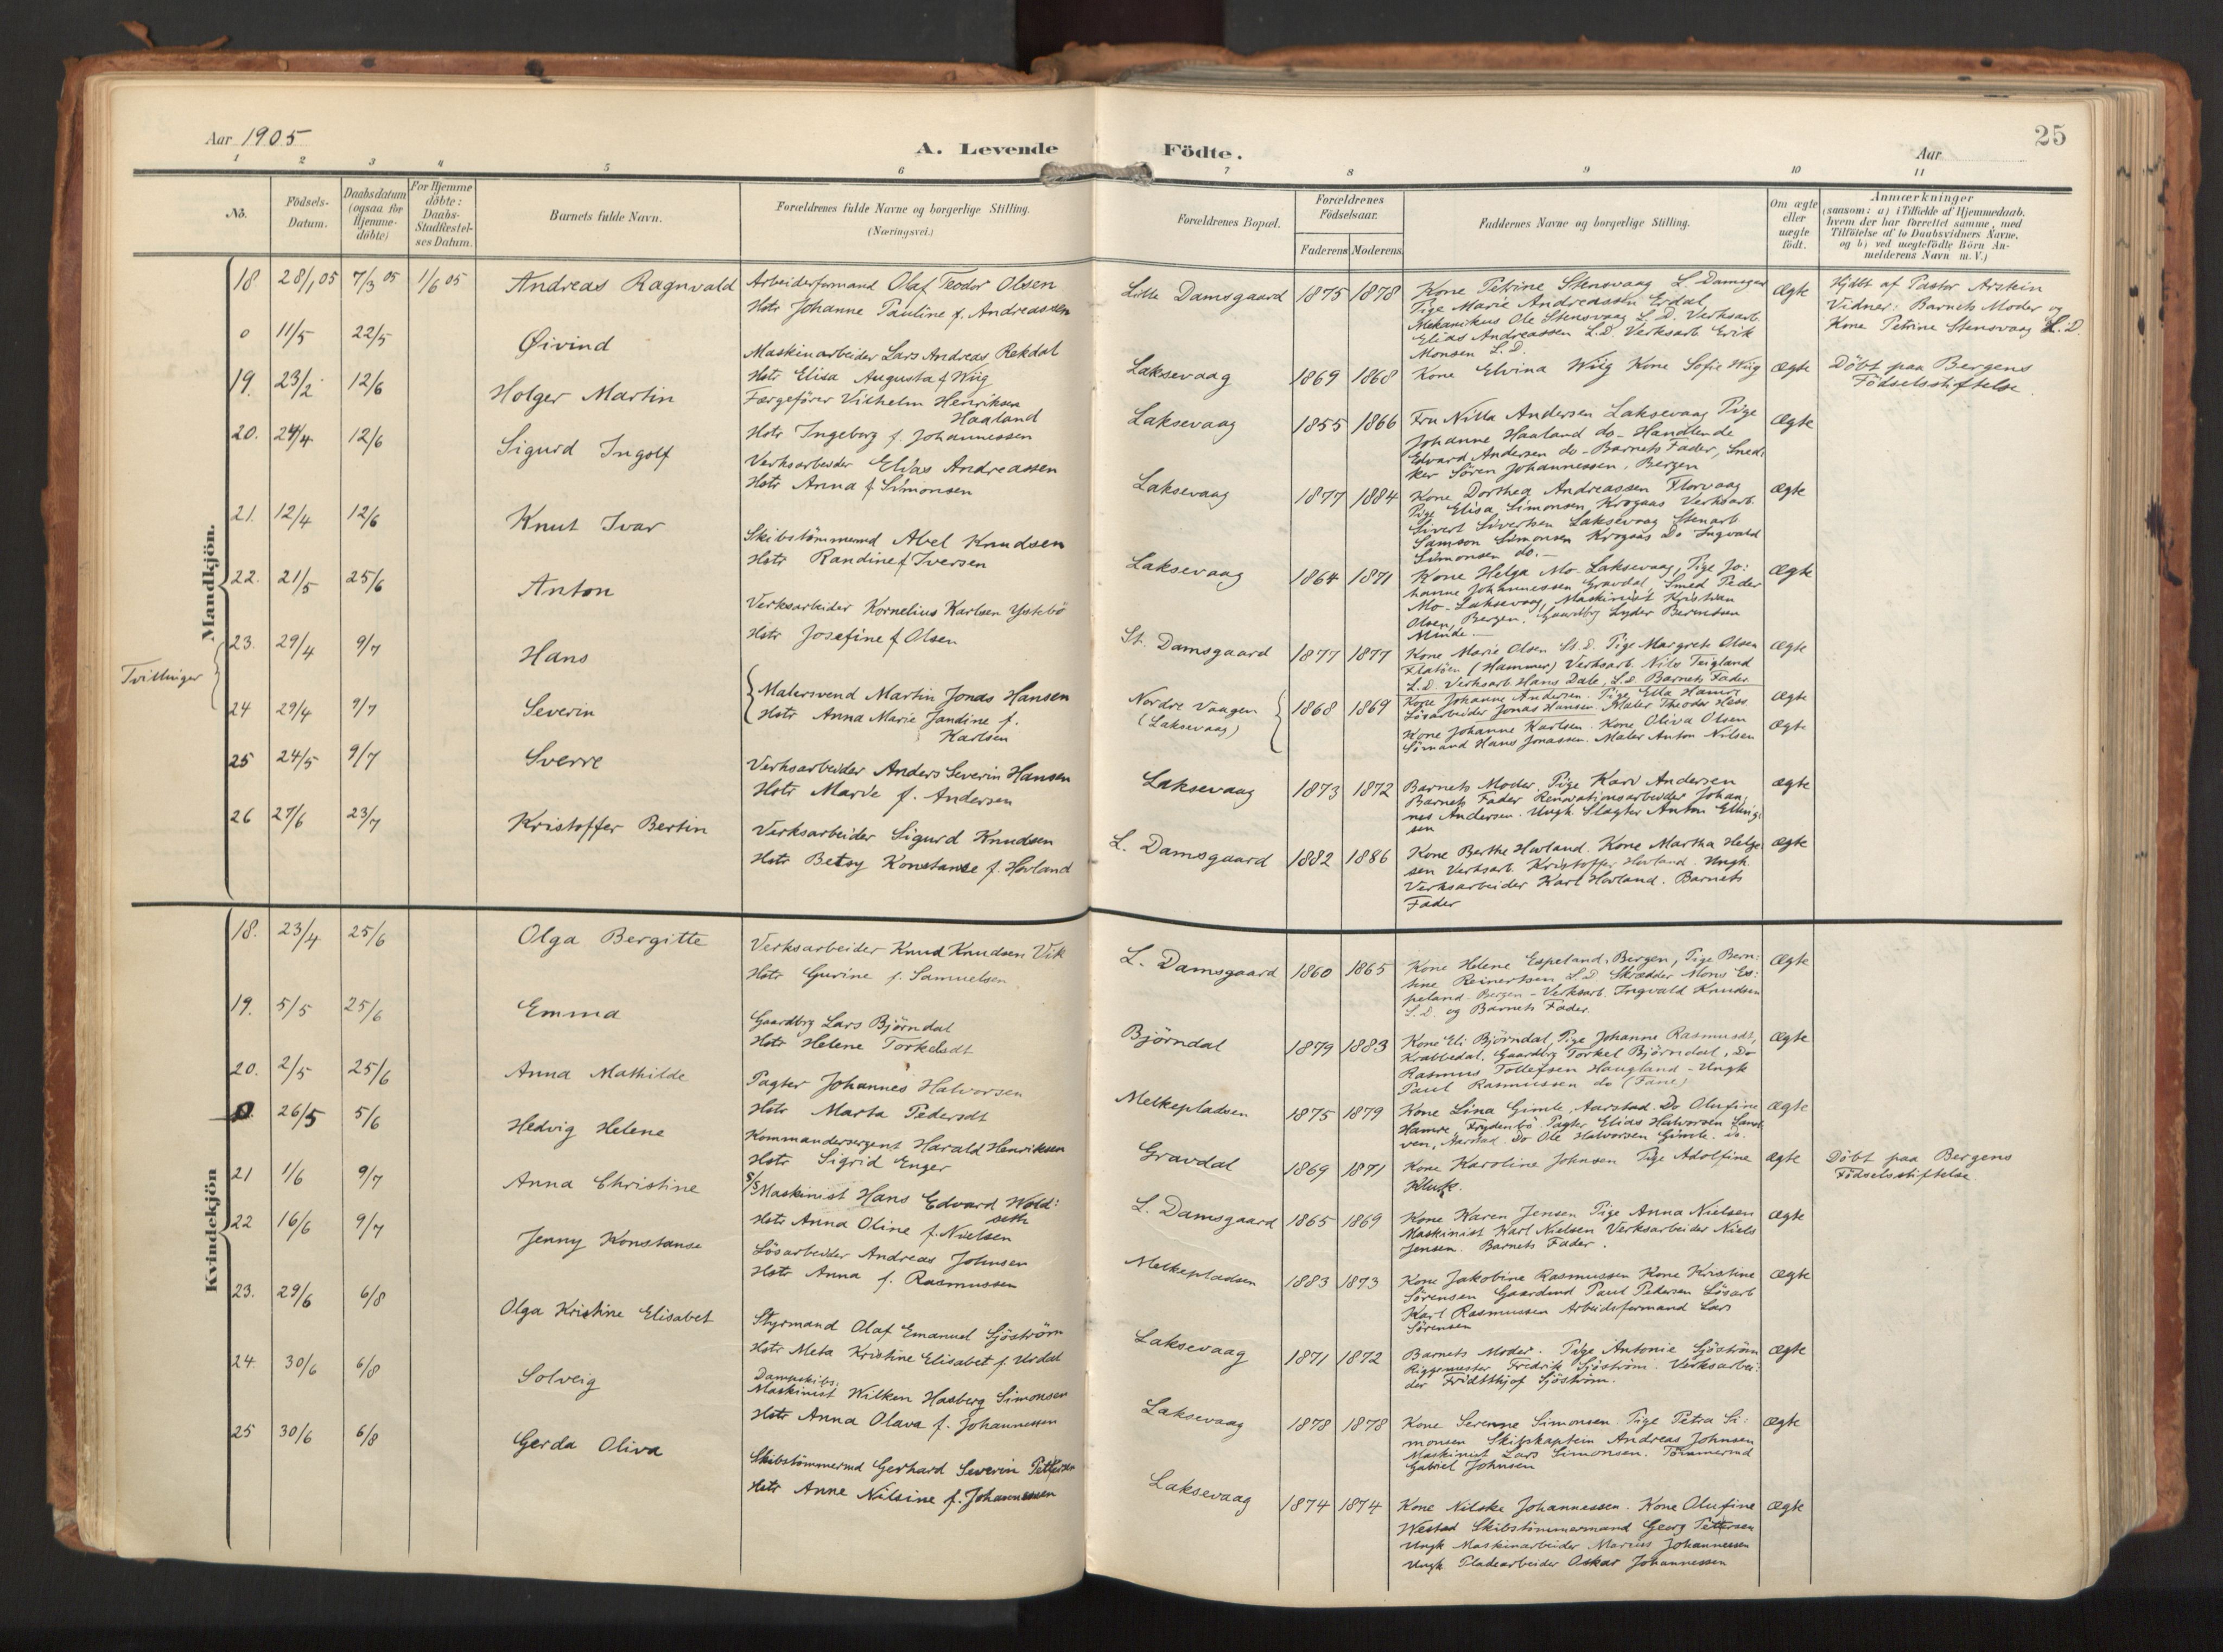 Aar 1905
A. Levende Födte.
Aar
25
1 2 3 4 5 6 7 8 9 10 11
No.
Födsels-Datum.
Daabsdatum (ogsaa for Hjemme-döbte)
For Hjemme döbte: Daabs-Stadfæstel-ses Datum.
Barnets fulde Navn.
Forældrenes fulde Navne og borgerlige Stilling. (Næringsvei.)
Forældrenes Bopæl.
Forældrenes Födselsaar.
Faderens Moderens
Faddernes Navne og borgerlige Stilling.
Om ægte eller uægte födt.
Anmærkninger (saasom: a) i Tilfælde af Hjemmedaab, hvem der har forrettet samme, med Tilföielse af to Daabsvidners Navne, og b) ved uægtefödte Börn An-melderens Navn m. V.)
Mandkjön.
18 28/1 05 7/3 05 1/6 05 Andreas Ragnvald
Arbeiderformand Olaf Teodor Olsen
Hstr Johanne Pauline f. Andreassen
Lille Damsgaard 1875 1878
Kone Petrine Stensvaag L. Damsgaar
Pige Marie Andreassen Erdal
Mekanikus Ole Stensvaag L. D. Verksarb.
Elias Andreassen L.D. Verksarb Erik
Monsen L. D.
Ægte
Hjdbt af Pastor Arstein
Vidner: Barnets Moder og
Kone Petrine Stensvaag L. D.
0 11/5 22/5 Øivind
Maskinarbeider Lars Andreas Rekdal
Hstr Elisa Augusta f Wiig
Laksevaag 1869 1868
Kone Elvina Wiig Kone Sofie Wiig
Ægte
Döbt paa Bergens
Födselsstiftelse.
19. 23/2 12/6 Holger Martin
Færgefører Vilhelm Henriksen
Haaland
Hstr Ingeborg f. Johannessen
Laksevaag 1855 1866
Fru Nilla Andersen Laksevaag Pige
Johanne Haaland do - Handlende
Edvard Andersen do - Barnets Fader, Sned:
ker Sören Johannessen, Bergen
Ægte
20. 24/4 12/6 Sigurd Ingolf
Verksarbeider Elias Andreassen
Hstr Anna f Simonsen
Laksevaag 1877 1884
Kone Dorthea Andreassen Florvaag
Pige Elisa Simonsen, Krogaas Verksarb.
Sivert Sivertsen Laksevaag Stenarb
Samson Simonsen Krogaas Do Ingvald
Simonsen do. -
Ægte
21. 12/4 12/6 Knut Ivar
Skibstömmermd Abel Knudsen
Hstr Randine f Iversen
Laksevaag 1864 1871
Kone Helga Mo - Laksevaag, Pige Jo:
hanne Johannessen Gravdal, Smed Peder
Mo - Laksevaag, Maskinist Kristian
Olsen, Bergen. Gaardbrg Lyder Berntsen
Minde. -
Ægte
22. 21/5 25/6 Anton
Verksarbeider Kornelius Karlsen Ystebö
Hstr Josefine f Olsen
St. Damsgaard 1877 1877
Kone Marie Olsen St. D. Pige Margrete Olsen
Flatöen (Hammer) Verksarb. Nils Teigland
L.D. Verksarb Hans Dale, L.D Barnets Fader.
Ægte
Tvillinger
23. 29/4 9/7 Hans
24 29/4 9/7 Severin
Malersvend Martin Jonas Hansen
Hstr Anna Marie Jandine f.
Karlsen
Nordre Vaagen
(Laksevaag)
1868 1869
Kone Johanne Andersen. Pige Ella Hamre
Lösarbeider Jonas Hansen. Maler Theodor Hess
Ægte
Kone Johanne Karlsen. Kone Oliva Olsen
Sömand Hans Jonassen. Maler Anton Nilsen
Ægte
25 24/5 9/7 Sverre
Verksarbeider Anders Severin Hansen
Hstr Marie f. Andersen
Laksevaag 1873 1872
Barnets Moder. Pige Kari Andersen
Barnets Fader Renovationsarbeider Johan,
nes Andersen. Ungk. Slagter Anton Elling
sen
Ægte
26 27/6 23/7 Kristoffer Bertin
Verksarbeider Sigurd Knudsen
Hstr Betsy Konstanse f. Hovland
L. Damsgaard 1882 1886
Kone Berthe Hovland. Kone Martha Helge
sen Verksarb. Kristoffer Hovland. Ungk.
Verksarbeider Karl Hovland. Barnets
Fader
Ægte
Kvindekjön
18. 23/4 25/6 Olga Bergitte
Verksarbeider Knud Knudsen Vik
Hstr Gurine f. Samuelsen
L. Damsgaard 1860 1865
Kone Helene Espeland, Bergen, Pige Bern:
tine Reinertsen L.D Skrædder Mons Es:
peland - Bergen - Verksarb. Ingvald Knudsen
L. D. og Barnets Fader.
Ægte
19. 5/5 25/6 Emma
Gaardbrg Lars Björndal
Hstr Helene Torkelsdt
Björndal 1879 1883
Kone Eli Björndal, Pige Johanne Rasmusdt,
Krabbedal, Gaardbrg Torkel Björndal, Do
Rasmus Tollefsen Haugland - Ungk
Paul Rasmussen do (Fane)
Ægte
20. 2/5 25/6 Anna Mathilde
Pagter Johannes Halvorsen
Hstr Marta Pedersdt
Melkepladsen 1875 1879
Kone Lina Gimle, Aarstad. Do Olufine
Hamre, Frydenbö. Pagter Elias Halvorsen Land
ven, Aarstad. Do Ole Halvorsen Gimle. do.
Ægte
0. 26/5 5/6 Hedvig Helene
Kommandersergent Harald Henriksen
Hstr Sigrid Enger
Gravdal 1869 1871
Kone Karoline Johnsen Pige Adolfine
Ægte
Döbt paa Bergens
Födselsstiftelse
21 1/6 9/7 Anna Christine
S/S Maskinist Hans Edvard Wold:
seth
Hstr Anna Oline f. Nielsen
L. Damsgaard 1865 1869
Kone Karen Jensen Pige Anna Nielsen
Maskinist Karl Nielsen Verksarbeider Niels
Jensen. Barnets Fader.
Ægte
22 16/6 9/7 Jenny Konstanse
Lösarbeider Andreas Johnsen
Hstr Anna f. Rasmussen
Melkepladsen 1883 1873
Kone Jakobine Rasmussen Kone Kristine
Sörensen Gaardmd Paul Pedersen Lösarb
Karl Rasmussen Arbeidsformand Lars
Sörensen
Ægte
23. 29/6 6/8 Olga Kristine Elisabet
Styrmand Olaf Emanuel Sjöström
Hstr Meta Kristine Elisabet f. Urdal
Laksevaag 1871 1872
Barnets Moder. Pige Antonie Sjöström
Riggemester Fredrik Sjöström. Verksarbei:
der Fridtthjof Sjöström.
Ægte
24. 30/6 6/8 Solveig
Dampskibs.
Maskinist Wilken Hasberg Simonsen
Hstr Anna Olava f. Johannessen
Laksevaag 1878 1878
Kone Serenne Simonsen. Pige Petra Si:
monsen Skibskaptein Andreas Johnsen
Maskinist Lars Simonsen. Tömmermd
Gabriel Johnsen
Ægte
25 30/6 6/8 Gerda Oliva
Skibstömmermd Gerhard Severin Pettersen
Hstr Anne Nilsine f. Johannessen
Laksevaag 1874 1874
Kone Nilske Johannessen. Kone Olufine
Westad Skibstömmermand Georg Pettersen
Ungk Maskinarbeider Marius Johannessen
Ungk Pladearbeider Oskar Johannessen
Ægte